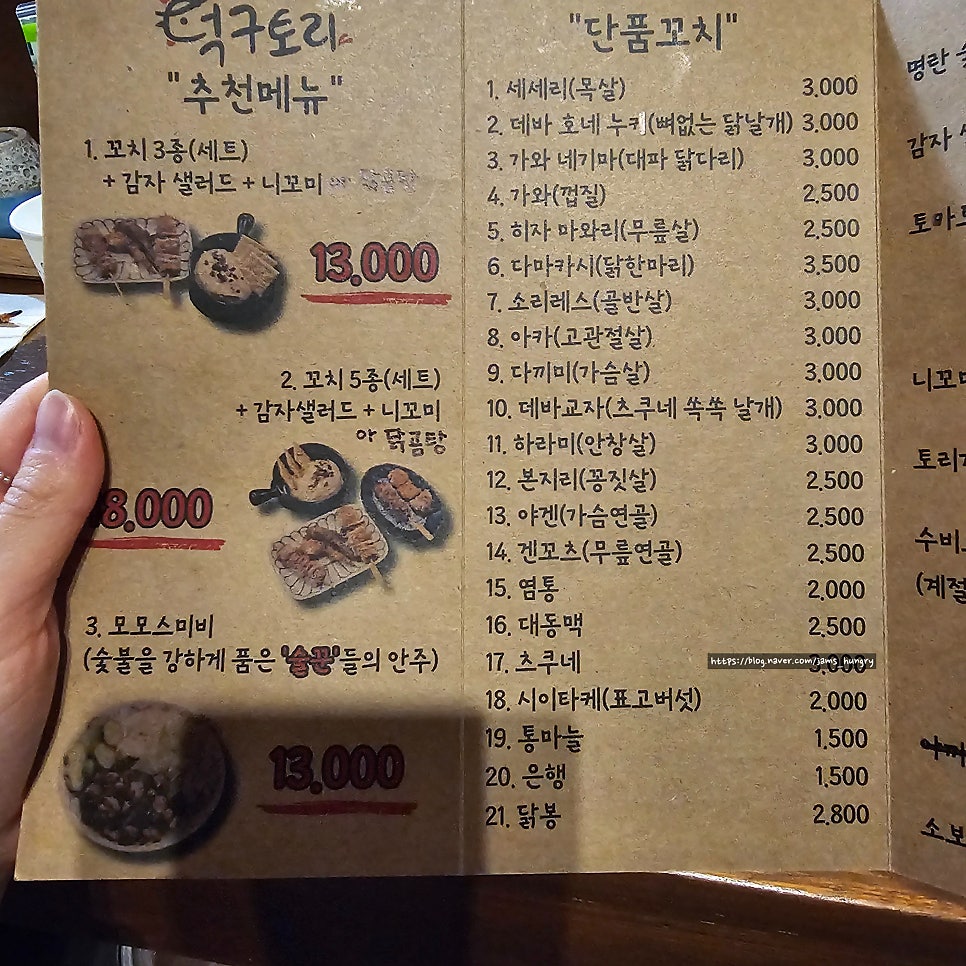 덕구토리
"추천메뉴"
1. 꼬치 3종(세트)
+ 감자 샐러드 + 니꼬미 or 닭곰탕
13,000
2. 꼬치 5종(세트)
+ 감자샐러드 + 니꼬미
or 닭곰탕
18.000
3. 모모스미비
(숯불을 강하게 품은 '술꾼'들의 안주)
13,000
"단품꼬치"
1. 세세리(목살) 3,000
2. 데바 호네 누키(뼈없는 닭날개) 3,000
3. 가와 네기마(대파 닭다리) 3,000
4. 가와(껍질) 2,500
5. 히자 마와리(무릎살) 2,500
6. 다마카시(닭한마리) 3,500
7. 소리레스(골반살) 3,000
8. 아카(고관절살) 3,000
9. 다끼미(가슴살) 3,000
10. 데바교자(츠쿠네 쏙쏙 날개) 3,000
11. 하라미(안창살) 3,000
12. 본지리(꽁짓살) 2,500
13. 야겐(가슴연골) 2,500
14. 겐꼬츠(무릎연골) 2,500
15. 염통 2,000
16. 대동맥 2,500
17. 츠쿠네 3,000
https://blog.naver.com/jams_hungry
18. 시이타케(표고버섯) 2,000
19. 통마늘 1,500
20. 은행 1,500
21. 닭봉 2,800
명란
감자
토마
니꼬미
토리
수비
(계절
소보